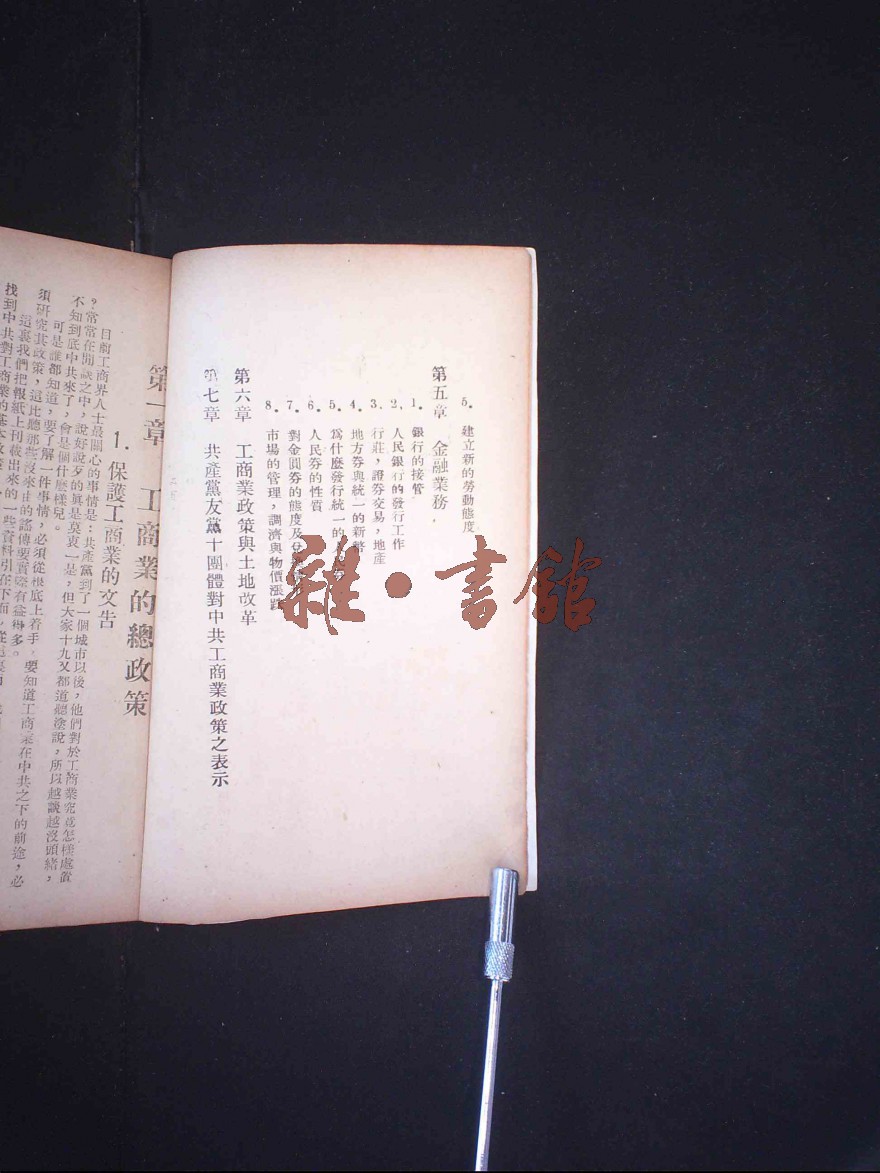 5. 建立新的勞動態度
第五章 金融業務
1. 銀行的接管
2. 人民銀行的發行工作
3. 行莊,證券交易,地產
4. 地方券與統一的新幣
5. 爲什麼發行統一的人民
6. 人民券的性質
7. 對金圓券的態度及
8. 市場的管理,調濟與物價漲跌
第六章 工商業政策與土地改革
第七章 共產黨友黨十團體對中共工商業政策之表示
雜·書館
第一章 工商業的總政策
1. 保護工商業的文告
目前工商界人士最關心的事情是:共產黨到了一個城市以後,他們對於工商業究竟怎樣處置
?常常在閒談之中,說好說歹的眞是莫衷一是,但大家十九又都道聽塗說,所以越說越沒頭緒,
不知到底中共來了,會是個什麼樣兒。
可是誰都知道,要了解一件事情,必須從根底上着手,要知道工商業在中共之下的前途,必
須研究其政策,這比聽那些沒來由的謠傳要實際有益得多。
這裏我們把報紙上刊載出來的一些資料引在下面,從
找到中共對工商業的基本政策